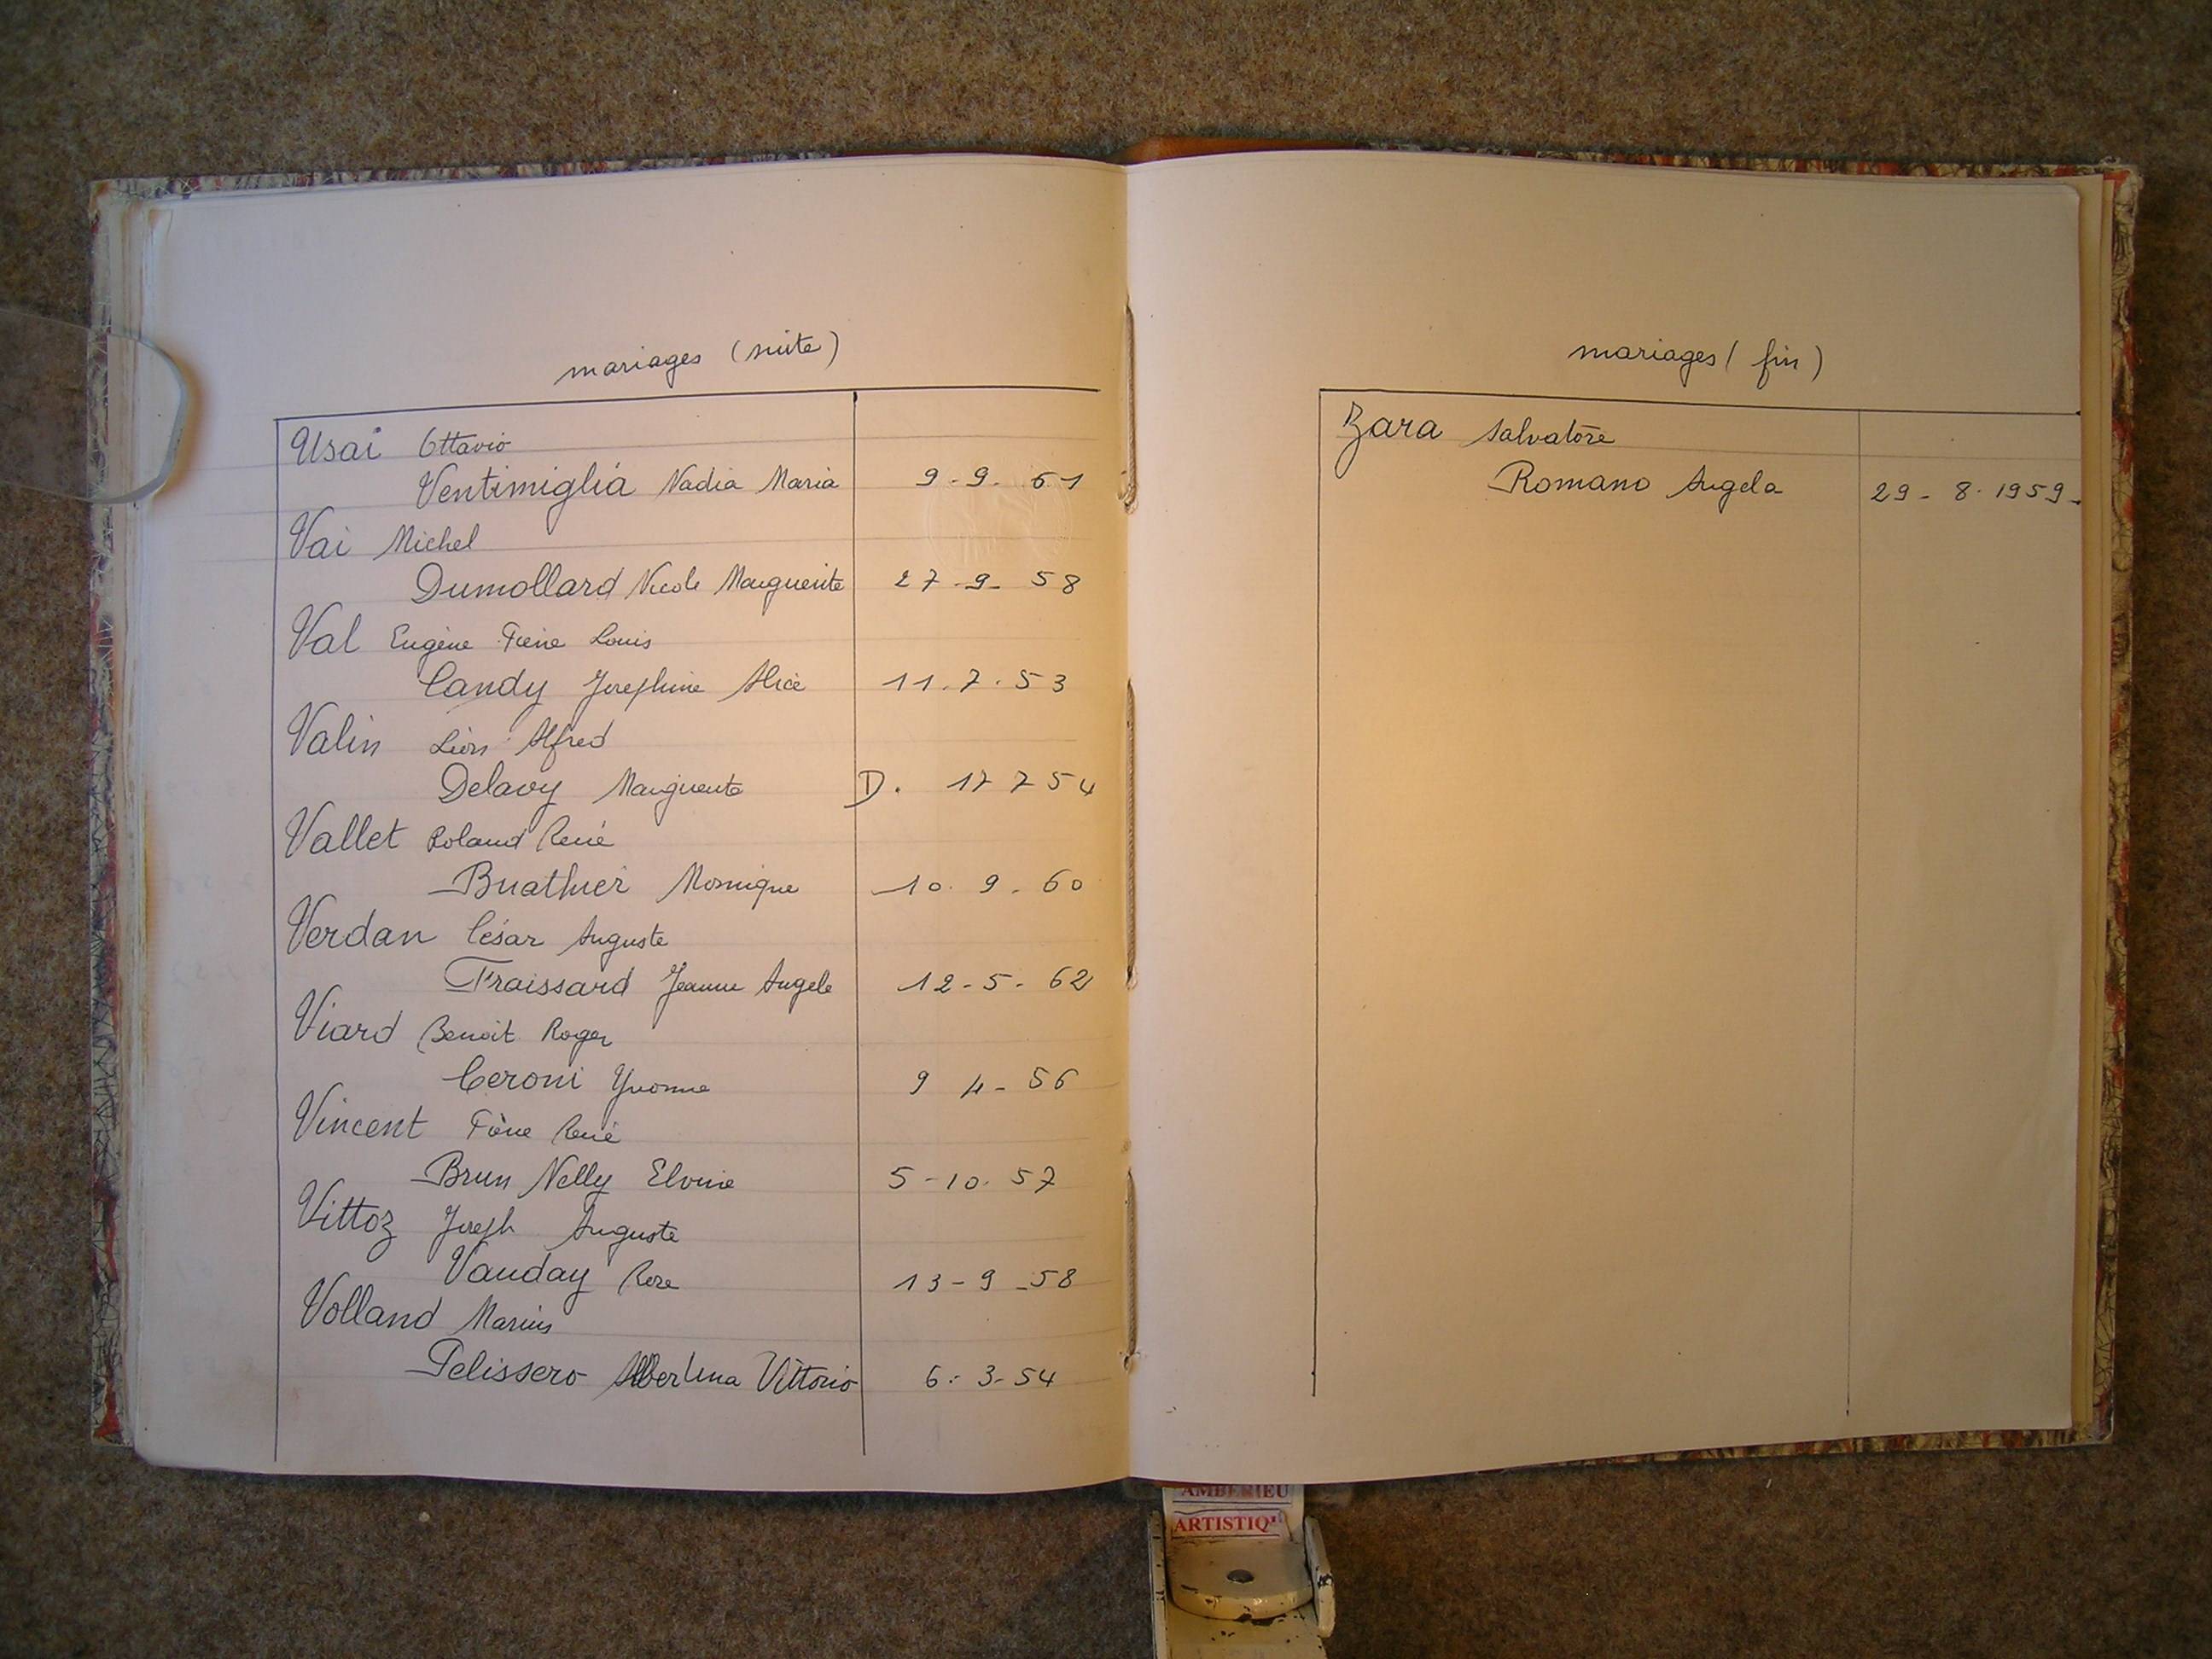 mariages (suite)
Usai Ottavio
Ventimiglia Nadia Maria 9-9-61
Vai Michel
Dumollard Nicole Marguerite 27-9-58
Val Eugène Louis
Candy Josephine Alice 11.7.53
Valin Léon Alfred
Delavy Marguerite D. 17 7 54
Vallet Roland René
Buathier Monique 10.9.60
Verdan César Auguste
Fraissard Jeanne Angele 12-5-62
Viard Benoit Roger
Ceroni Yvonne 9 4-56
Vincent René
Brun Nelly 5-10.57
Vittoz Joseph Auguste
Vauday Rose 13-9-58
Volland Marius
Pelissero Albertina Vittorio 6-3-54
mariages (fin)
Zara Salvatore
Romano Angela 29-8.1959-
AMBERIEU
ARTISTIQ